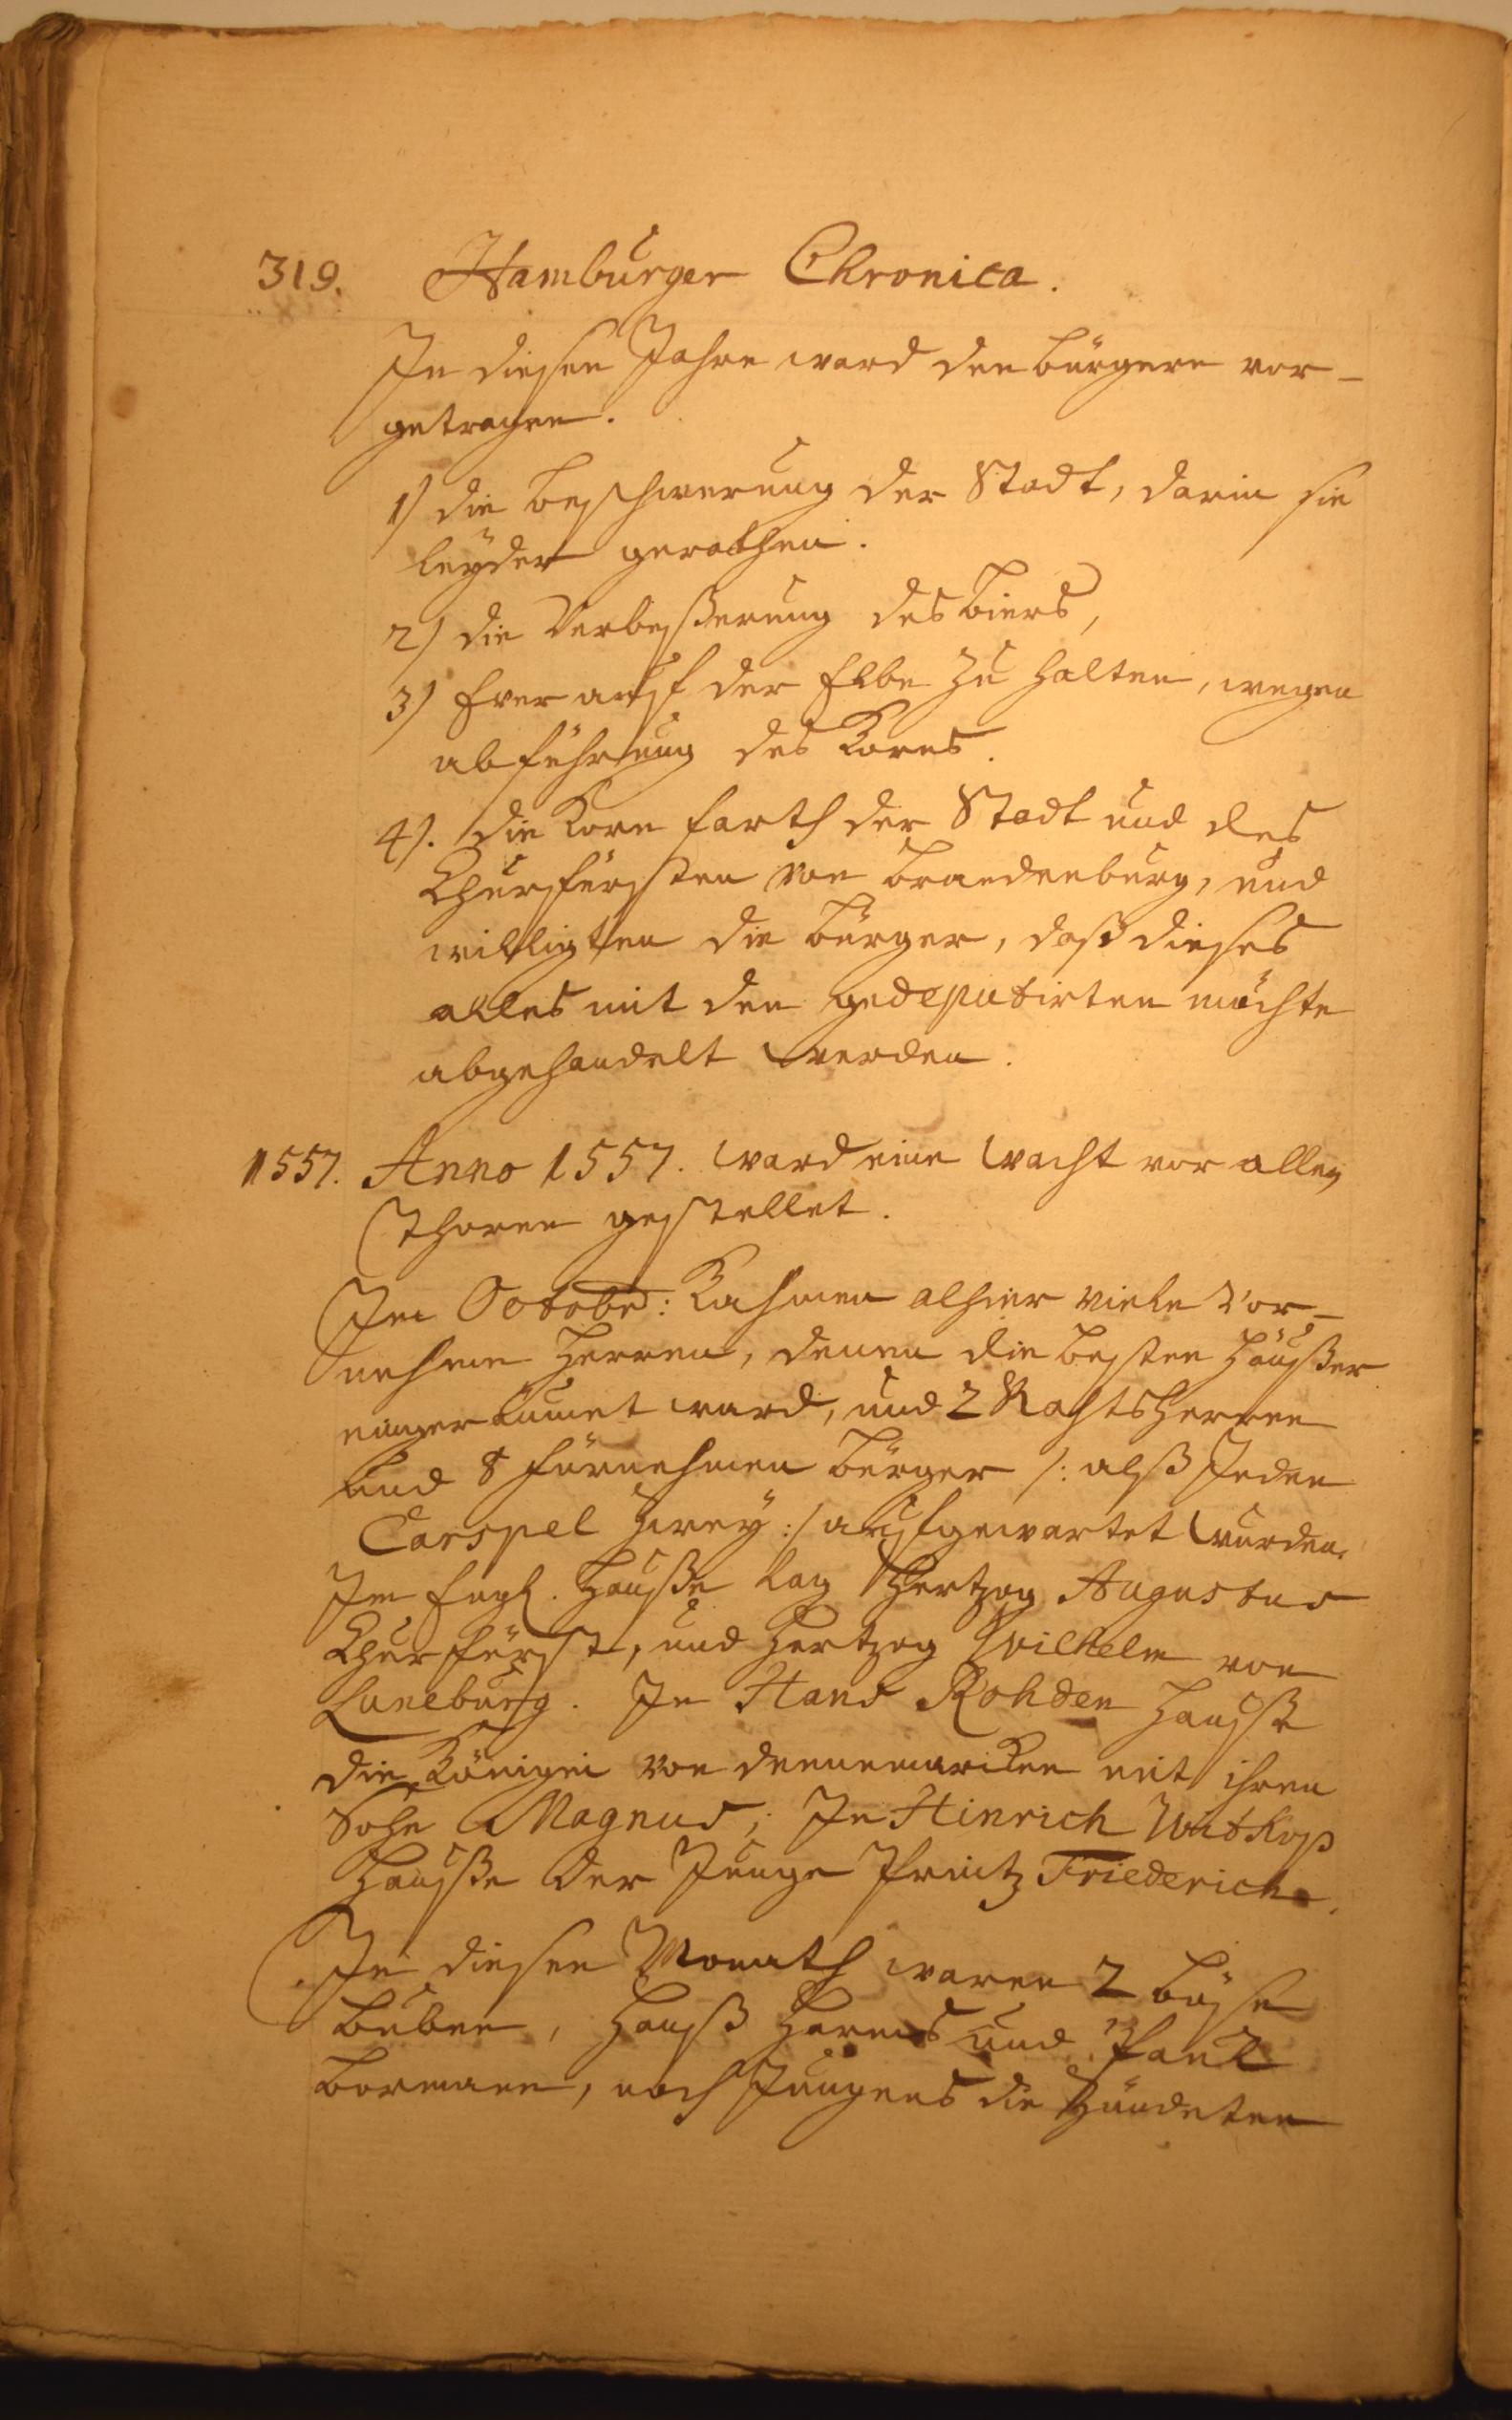 319. Hamburger Chronica.
In diesen Jahre ward den bürgern vor-
getragen.
1) die beschwerung der Stadt, darin sie
leyder gerathen.
2) die Verbeßerung des biers,
3) Ever auff der Elbe zu halten, wegen
abführung des Korns.
4). die Korn farth der Stadt und des
Churfürsten von brandenburg, und
willigten die bürger, daß dieses
alles mit den gedeputirten möchte
abgehandelt werden.
1557. Anno 1557. ward eine wacht vor allen
Thoren gestellet.
Im Octobr: Kahmen alhier viele Vor-
nehme Herren, denen die besten Häußer
eingeräumet ward, und 2 Rahtsherren
und 8 fürnehmen bürger /: alß Jeden
Carspel zwey :/ auffgewartet wurden.
Im Engl. Hauße lag Hertzog Augustus
Churfürst, und Hertzog Wilhelm von
Luneburg. In Hans Rohden Hauße
die Königin von dennemarcken mit ihren
Sohn Magnus; In Hinrich Witkop
Hauße der Junge Printz Friederich.
In diesen Monath waren 2 böse
buben, Hanß Harms und Paul
bormann, noch Jungens die zündeten